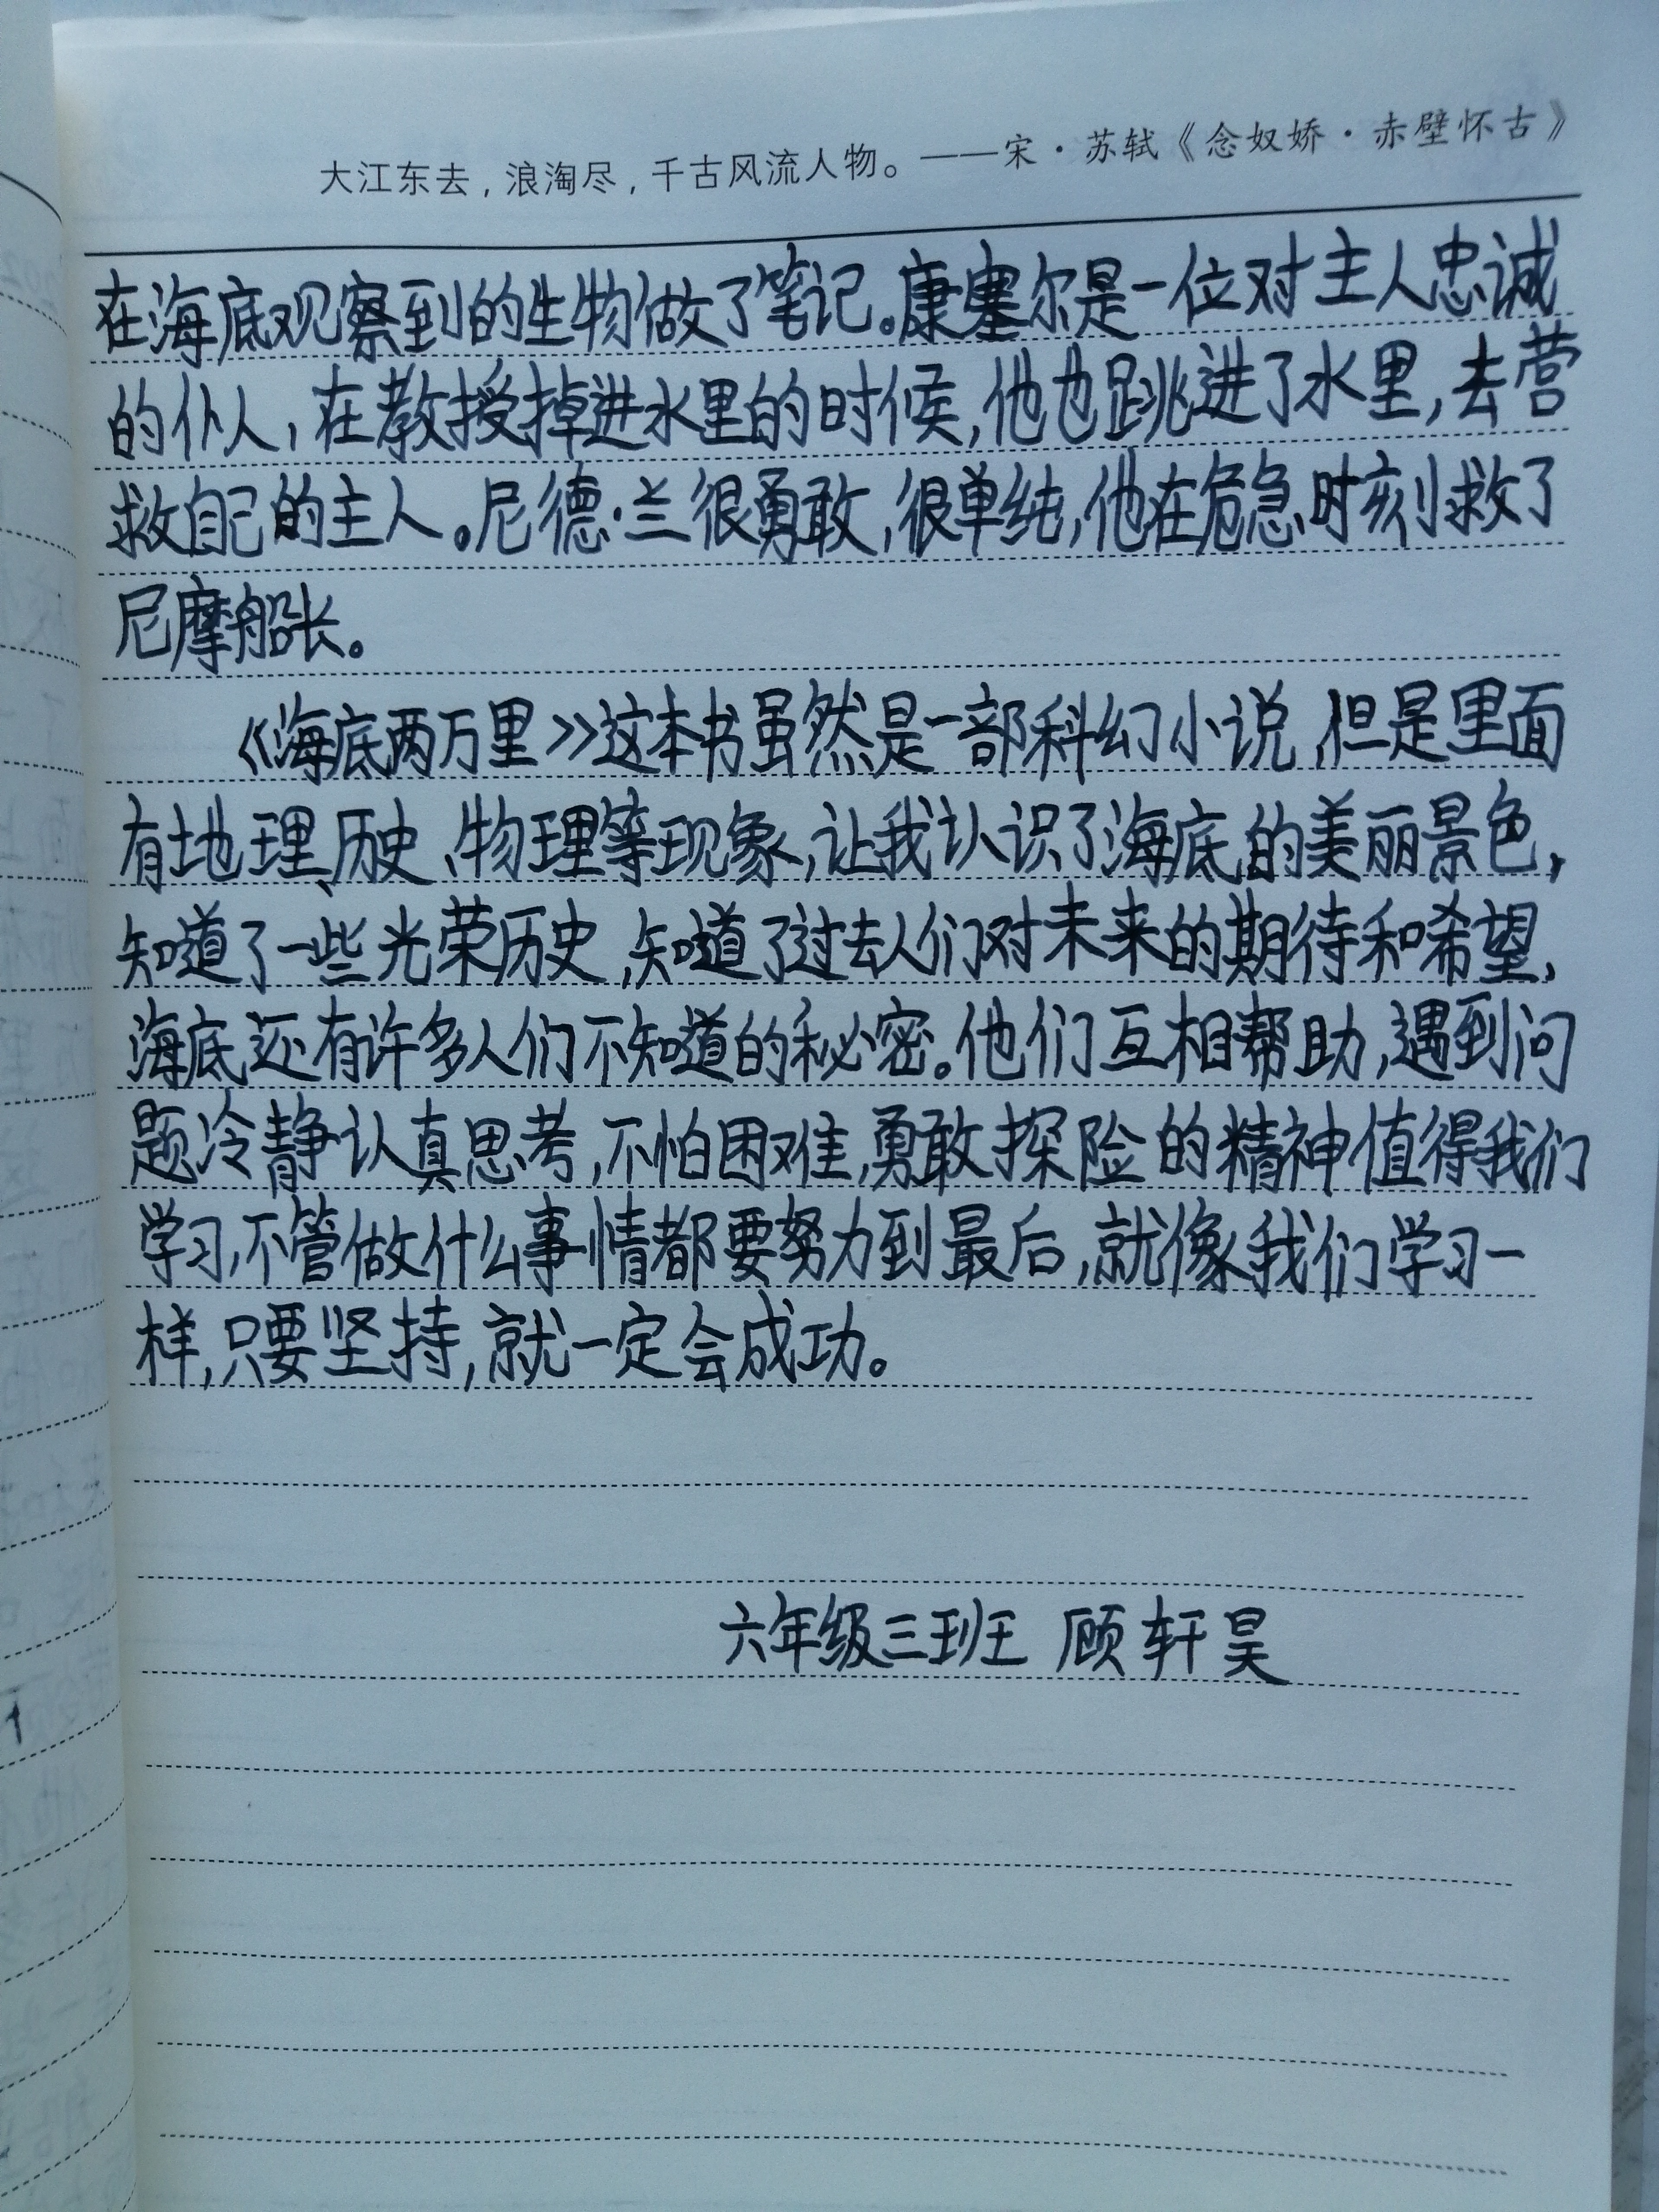 大江东去，浪淘尽，千古风流人物。——宋·苏轼《念奴娇·赤壁怀古》
在海底观察到的生物做了笔记。康塞尔是一位对主人忠诚
的仆人，在教授掉进水里的时候，他也跳进了水里，去营
救自己的主人。尼德·兰很勇敢，很单纯，他在危急时刻救了
尼摩船长。
《海底两万里》这本书虽然是一部科幻小说，但是里面
有地理、历史、物理等现象，让我认识了海底的美丽景色，
知道了一些光荣历史，知道了过去人们对未来的期待和希望，
海底还有许多人们不知道的秘密。他们互相帮助，遇到问
题冷静认真思考，不怕困难，勇敢探险的精神值得我们
学习，不管做什么事情都要努力到最后，就像我们学习一
样，只要坚持，就一定会成功。
六年级三班 顾轩昊